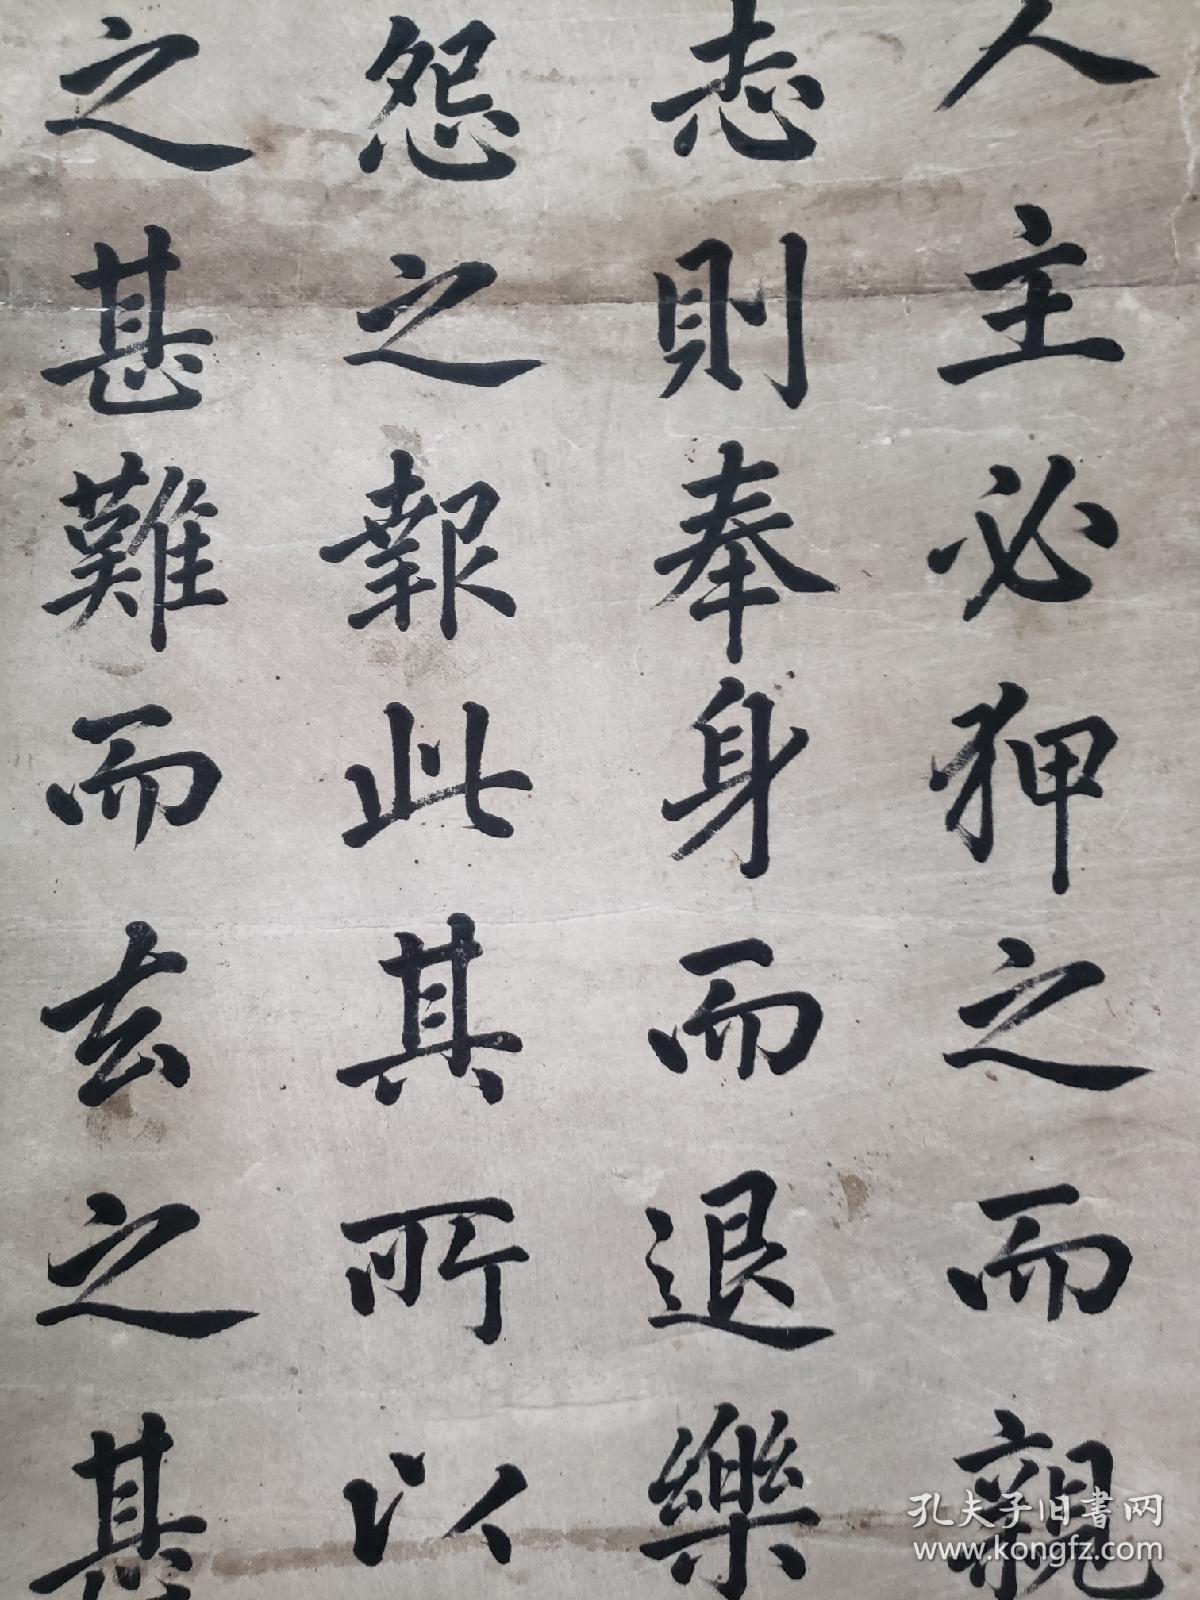 人主必狎之而親
志則奉身而退樂
怨之報此其所以
之甚難而去之甚
孔夫子旧書网
www.kongfz.com